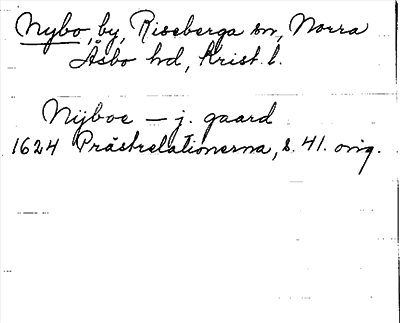 Nybo, by, Riseberga sn, Norra
Åsbo hd, Krist. l.
Nijboe - j. gaard
1624 Prästrelationerna, s. 41. orig.